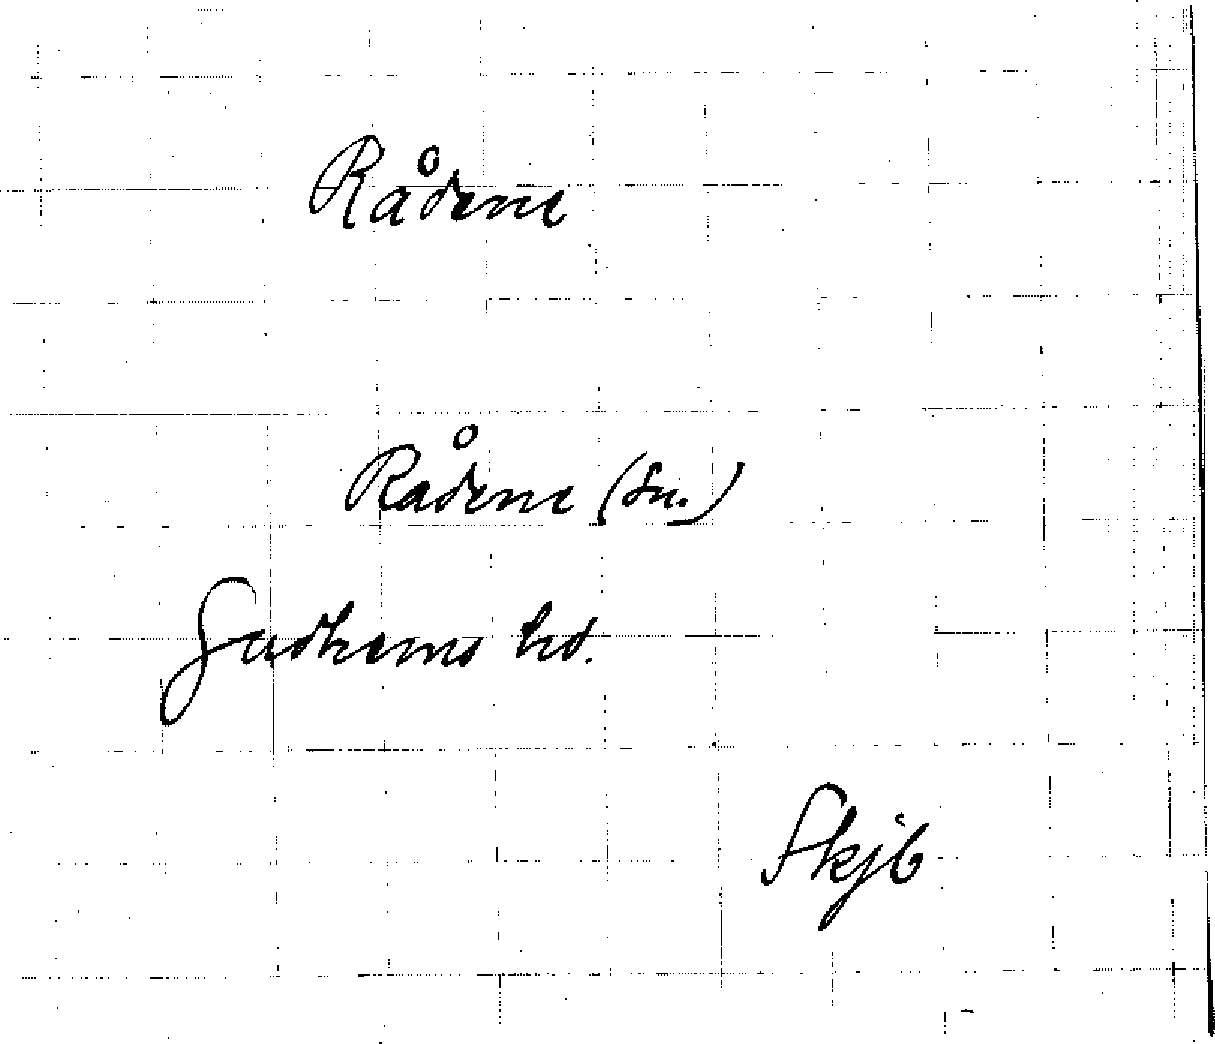 Rådene
Rådene (sn.)
Gudhems hd.
Skjb